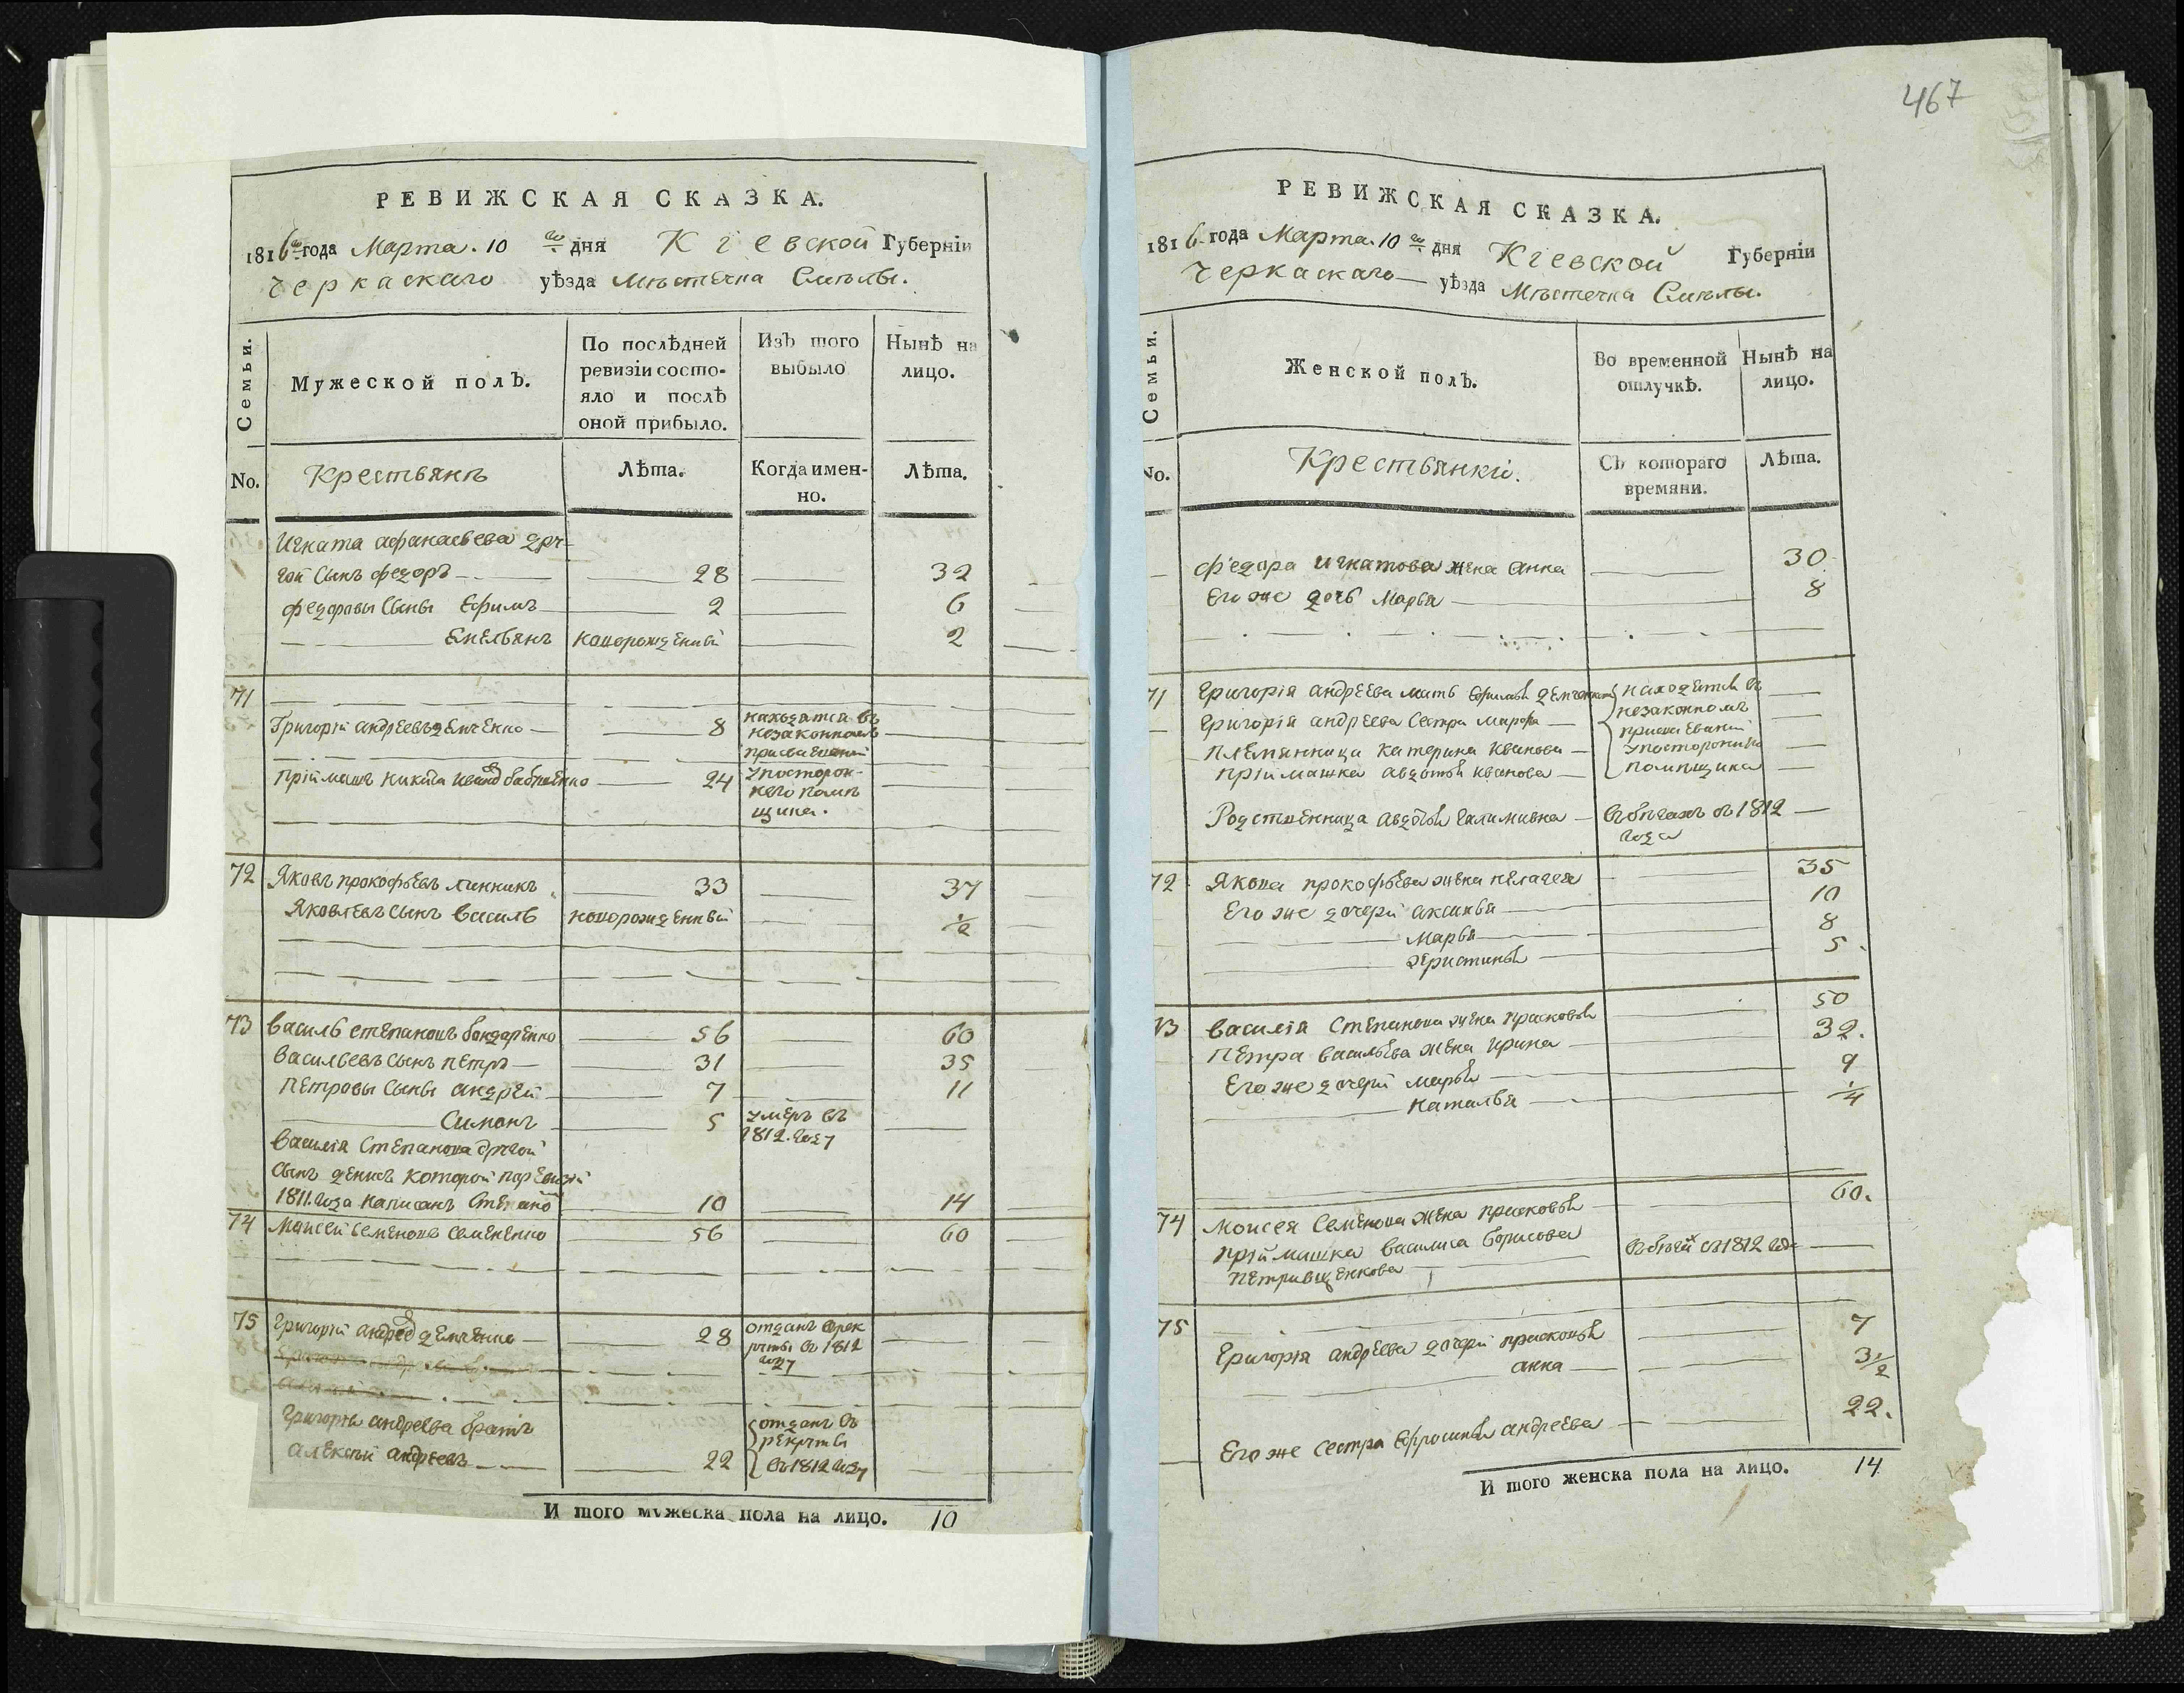 467
РЕВИЖСКАЯ СКАЗКА.
1816го года Марта. 10 го дня Кіевской Губерніи
Черкаскаго уѣзда Мѣстечка Смѣлы.
Семьи.
Мужеской полъ.
По послѣдней
ревизіи состо-
яло и послѣ
оной прибыло.
Изъ того
выбыло
Нынѣ на
лицо.
No.
Крестьянъ
Лѣта.
Когда имен-
но.
Лѣта.
Игната афанасьева дру-
гой Сынъ федоръ 28 32
федоровы Сыны Ефимъ 2 6
Емельянъ новорожденный 2
71
Григорій андреевъ демченко 8
находятся въ
незаконномъ
присвоеніи
Пріймашъ никита 24
у посторон-
него помѣ
щика.
72 Яковъ прокофьевъ линникъ 33 37
Яковлевъ Сынъ василь новорожденный ½
73 василь степановъ бондаренко 56 60
васильевъ сынъ петръ 31 35
петровы Сыны андрей 7 11
Симонъ 5 умеръ въ
1812. году
василія Степанова другой
Сынъ денисъ которой по ревизіи
1811. года написанъ Степано 10 14
74 Моисей семеновъ семененко 56 60
75 григорій андреев демченко 28
отданъ врек
руты въ 1812
году
григорія андреева братъ
алексѣй андреевъ 22
отданъ въ
рекруты
въ 1812 году
И того мужеска пола на лицо. 10
РЕВИЖСКАЯ СКАЗКА.
1816 года Марта. 10 го дня Кіевской Губерніи
Черкаскаго уѣзда Мѣстечка Смѣлы.
Семьи.
Женской полъ.
Во временной
отлучкѣ.
Нынѣ на
лицо.
No.
Крестьянкі.
Съ котораго
времяни.
Лѣта.
федора игнатова жена анна 30
Его же дочь марья 8
71 григорія андреева мать демченкова
григорія андреева сестра марфа
племянница катерина иванова
пріймашка авдотья иванова
находятся въ
незаконномъ
присвоеніи
у посторонняго
помѣщика
Родственница авдотья въ бѣгахъ съ 1812
года
72 якова прокофьева жена пелагея 35
Его же дочери аксинья 10
марья 8
христинья 5
73 василія Степанова жена прасковья 50
петра васильева жена ирина 32.
Его же дочери марья 9
наталья ¼
74 моисея Семенова жена прасковья 60.
пріймашка василиса борисова въ бѣгахъ съ 1812 года
75
григорія андреева дочери прасковья 7
анна 3½
Его же сестра Ефросинья андреева 22.
И того женска пола на лицо. 14